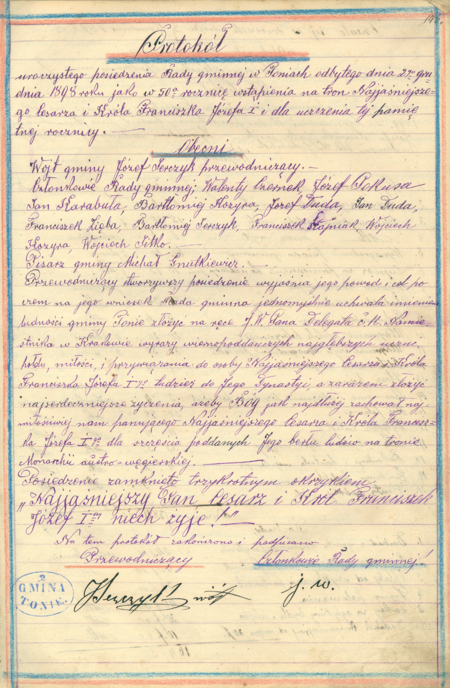 Protokół
uroczystego posiedzenia Rady gminnej w Toniach odbytego dnia 2go gru
dnia 1898 roku jako w 50tą rocznicę wstąpienia na tron Najjaśniejsze-
go Cesarza i Króla Franciszka Józefa I i dla uczczenia tej pamię
tnej rocznicy. —
Obecni
Wójt gminy Józef Serczyk przewodniczący. —
Członkowie Rady gminnej Walenty Czernek Józef
Jan Karabuła, Bartłomiej Kozyra, Józef Duda, Jan Duda,
Franciszek Zięba, Bartłomiej Serczyk, Franciszek Wojciech
Kozyra, Wojciech Sitko. —
Pisarz gminy Michał Gnutkiewicz. —
Przewodniczący otworzywszy posiedzenie wyjaśnia jego powód i cel po
czem na jego wniosek Rada gminna jednomyślnie uchwala imieniem
ludności gminy Tonie złożyć na ręce J. W. Pana Delegata c. k. Namie
stnika w Krakowie wyrazy wiernopoddańczych najgłębszych uczuć
hołdu, miłości, i przywiązania do osoby Najjaśniejszego Cesarza i Króla
Franciszka Józefa I tudzież do Jego Dynastyi, a zarazem złożyć
najserdeczniejsze życzenia, ażeby Bóg jak najdłużej zachował naj
miłościwiej nam panującego Najjaśniejszego Cesarza i Króla Francisz-
ka Józefa I dla szczęścia poddanych Jego berłu ludów na tronie
Monarchii austro-węgierskiej. —
Posiedzenie zamknięto trzykrotnym okrzykiem
„Najjaśniejszy Pan Cesarz i Król Franciszek
Józef I niech żyje!"—
Na tem protokół zakończono i podpisano
Przewodniczący Członkowie Rady gminnej!
GMINA
TONIE. JSerczyk wójt j. w.